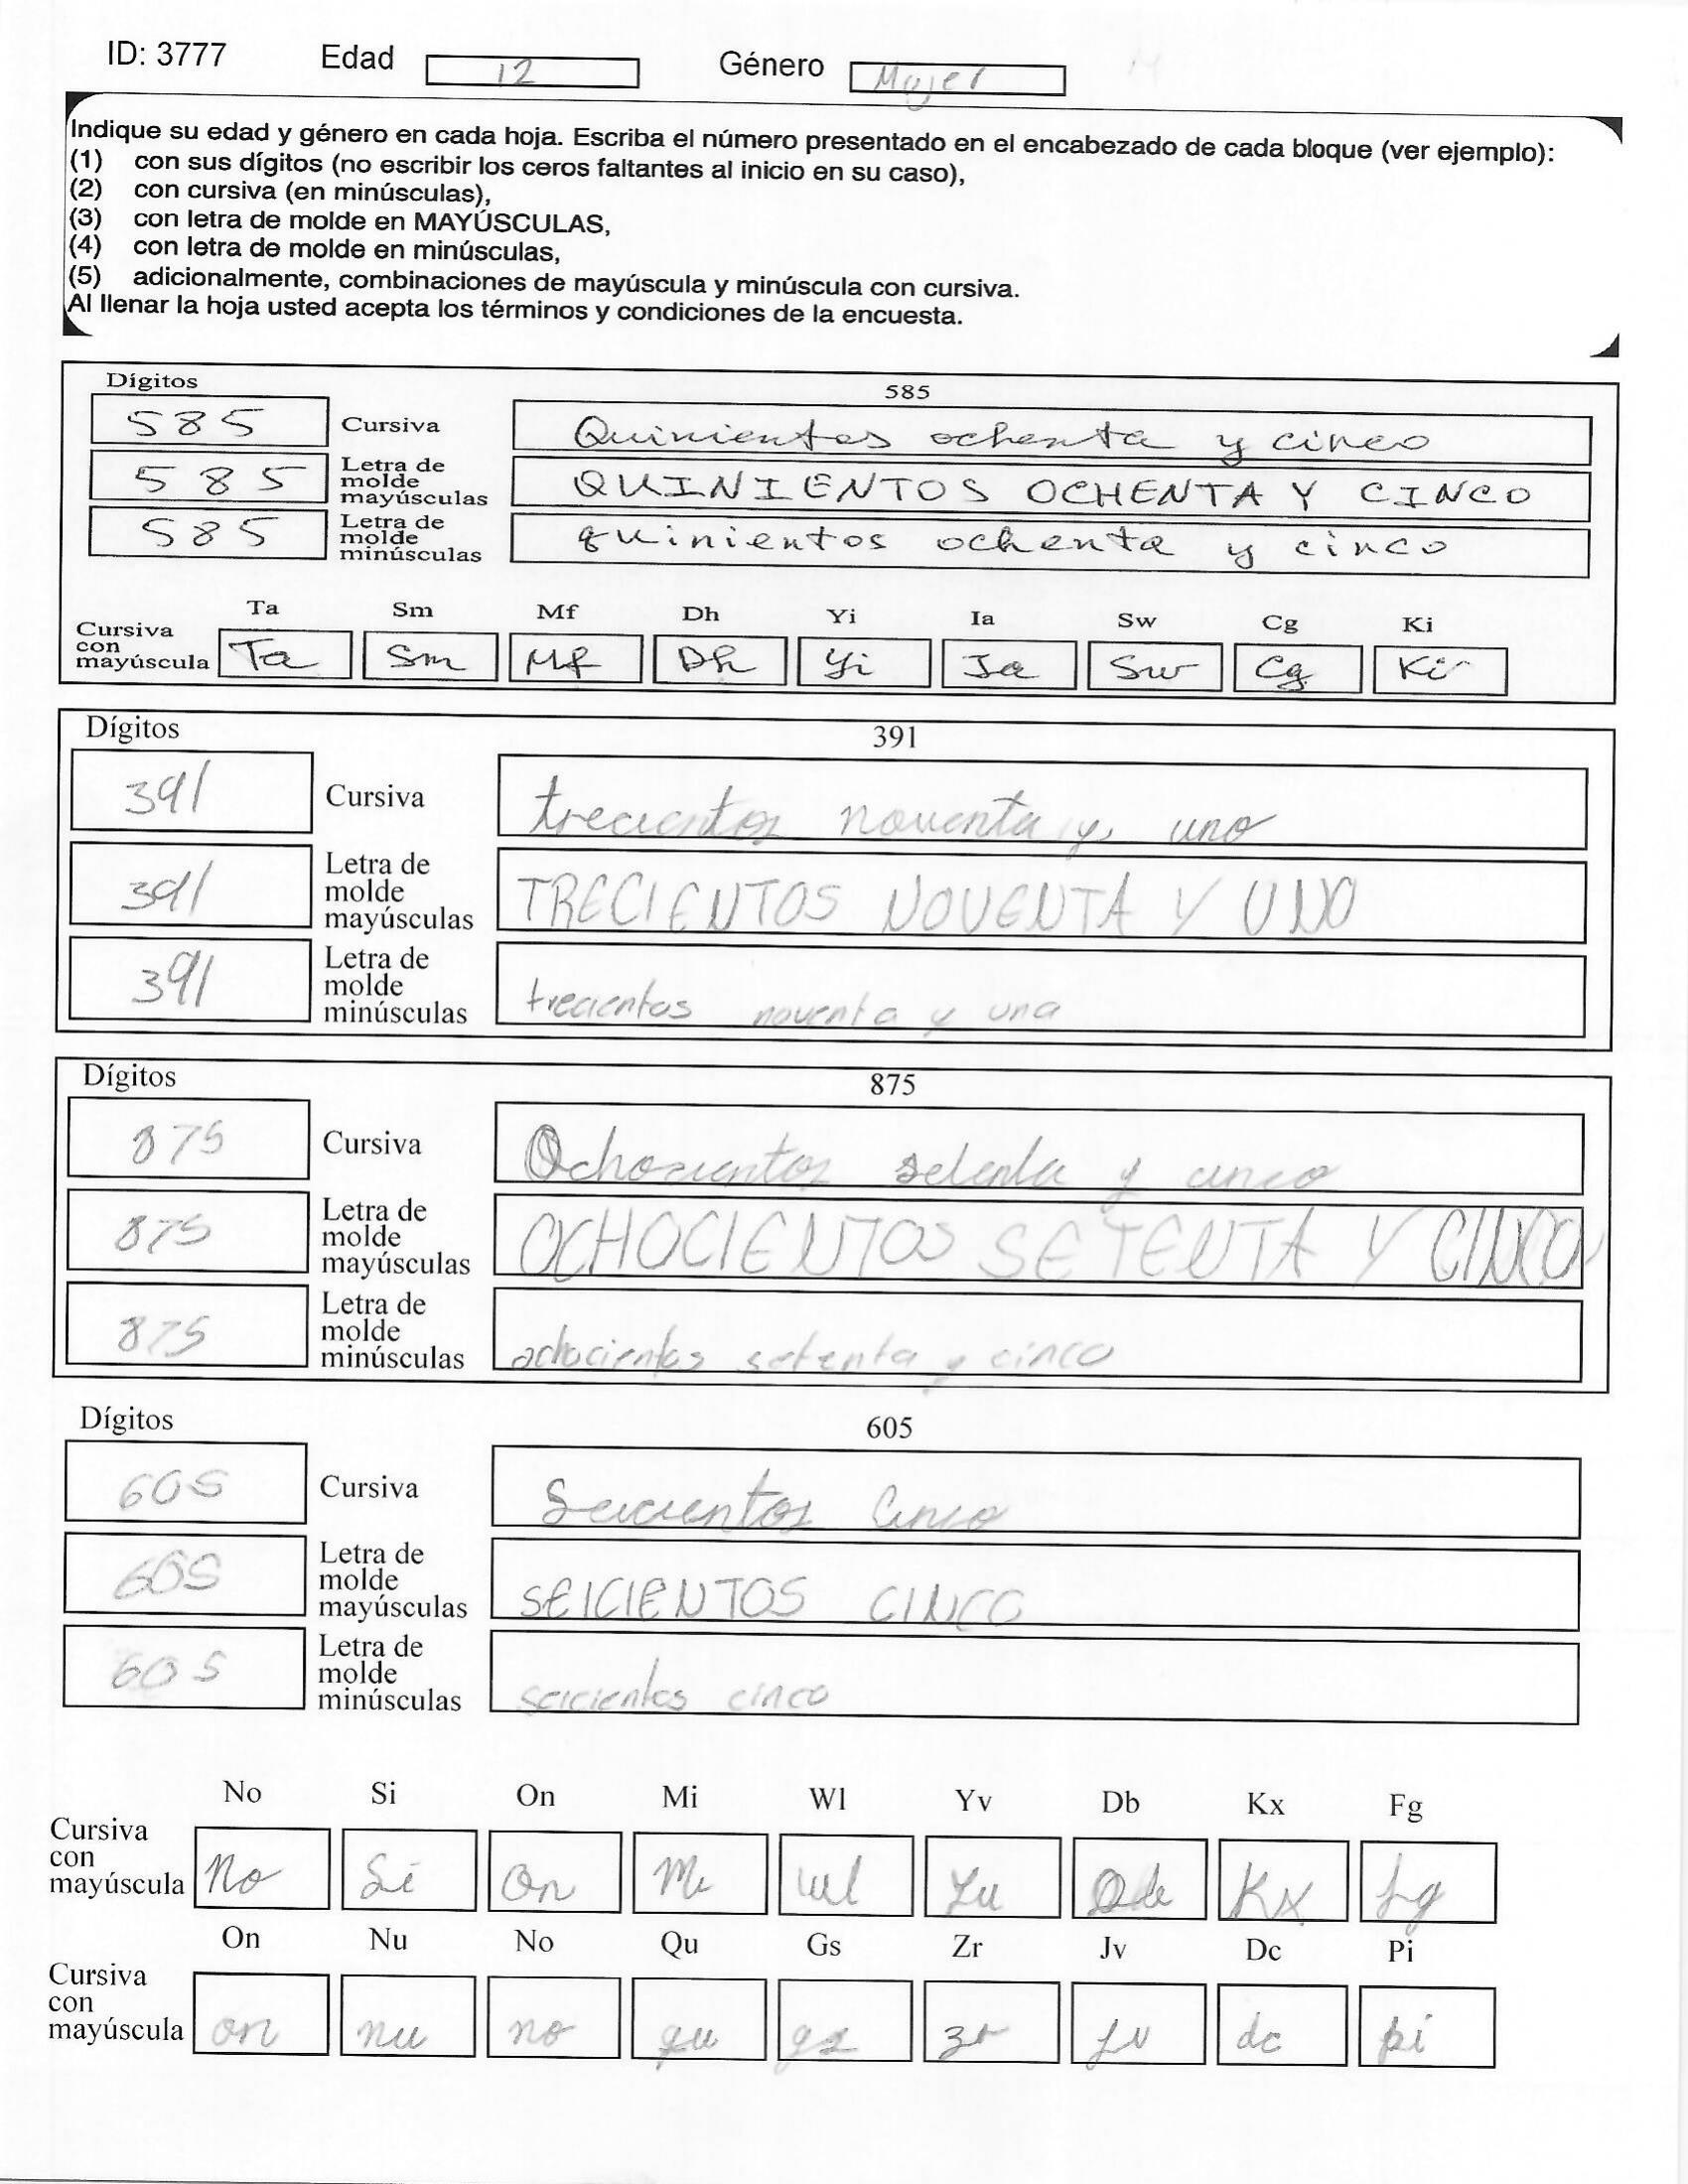 ID: 3777 Edad 12 Género Mujer
Indique su edad y género en cada hoja. Escriba el número presentado en el encabezado de cada bloque (ver ejemplo):
(1) con sus dígitos (no escribir los ceros faltantes al inicio en su caso),
(2) con cursiva (en minúsculas),
(3) con letra de molde en MAYÚSCULAS,
(4) con letra de molde en minúsculas,
(5) adicionalmente, combinaciones de mayúscula y minúscula con cursiva.
Al llenar la hoja usted acepta los términos y condiciones de la encuesta.
Dígitos 585
585 Cursiva Quinientos ochenta y cinco
585 Letra de molde mayúsculas QUINIENTOS OCHENTA Y CINCO
585 Letra de molde minúsculas quinientos ochenta y cinco
Ta Sm Mf Dh Yi Ia Sw Cg Ki
Cursiva con mayúscula Ta Sm Mf Dh Yi Ia Sw Cg Ki
Dígitos 391
391 Cursiva trecientos noventa y uno
391 Letra de molde mayúsculas TRECIENTOS NOVENTA Y UNO
391 Letra de molde minúsculas trecientos noventa y uno
Dígitos 875
875 Cursiva Ochocientos setenta y cinco
875 Letra de molde mayúsculas OCHOCIENTOS SETENTA Y CINCO
875 Letra de molde minúsculas ochocientos setenta y cinco
Dígitos 605
605 Cursiva Seicientos Cinco
605 Letra de molde mayúsculas SEICIENTOS CINCO
605 Letra de molde minúsculas seicientos cinco
No Si On Mi Wl Yv Db Kx Fg
Cursiva con mayúscula No Si On Mi wl Yv Db Kx Fg
On Nu No Qu Gs Zr Jv Dc Pi
Cursiva con mayúscula on nu no qu gs zr jv dc pi